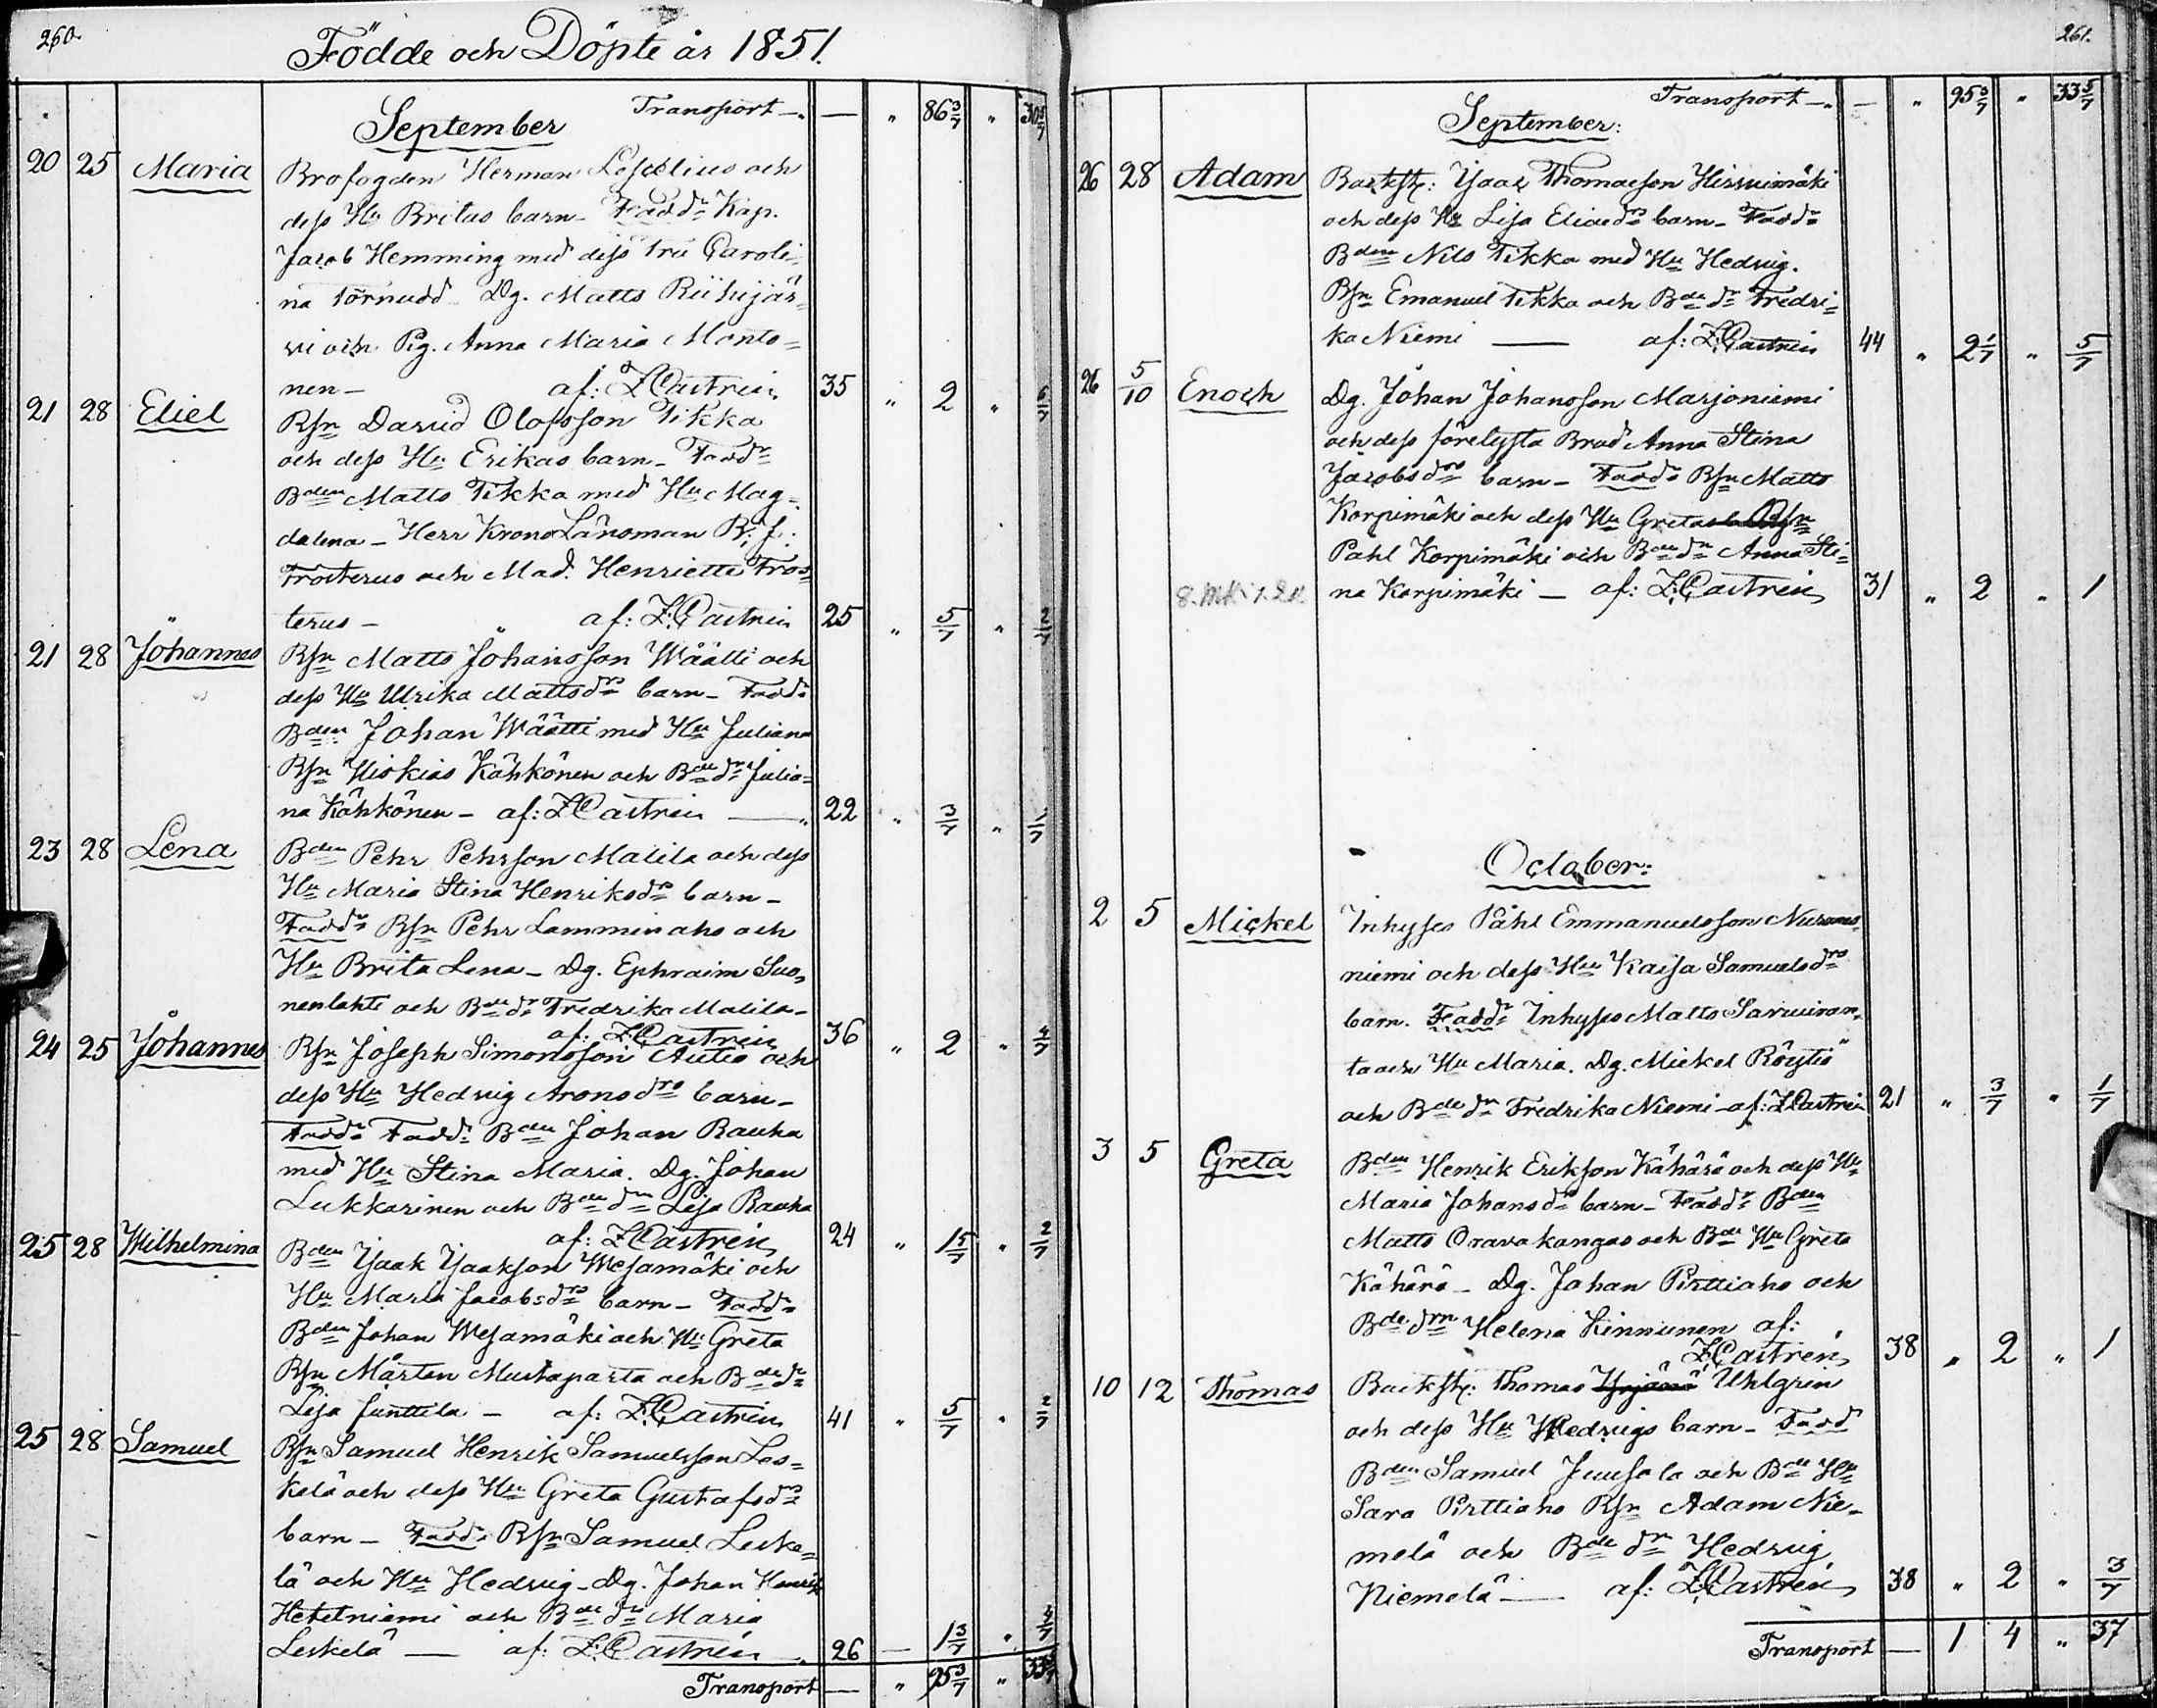 260.
Födde och Döpte år 1851.
September Transport — — " 86 3/7 " 30 5/7
20 25 Maria Brofogden Herman och
dess Hu Britas barn - Faddr Kap.
Jacob Hemming med dess fru Caroli=
na född Dg. Matts Riihijär=
vi och Pig. Anna Maria Monto=
nen - af: Z. Castrén 35 " 2 "
21 28 Eliel Bsn David Olofsson Tikka
och dess Hu Erikas barn - Faddr
Bden Matts Tikka med Hu Mag=
dalena - Herr Krono Länsman B: f:
Frosterus och Mad. Henriette Fros=
terus - af: Z. Castrén 25 " 5/7 " 2/7
21 28 Johannes Bsn Matts Johansson Wäätti och
dess Hu Ulrika Mattsdrs barn - Faddr
Bden Johan Wäätti med Hu Juliana
Bsn Hiskias Kähkönen och Bde dr Julia=
na Kähkönen - af: Z Castrén — 22 " 3/7 " 1/7
23 28 Lena Bden Pehr Pehrsson Malila och dess
Hu Maria Stina Henriksdrs barn -
Faddr Bsn Pehr Lamminaho och
Hu Brita Lena - Dg. Ephraim Suo=
nenlahti och Bde dr Fredrika Malila -
af: Z Castrén 36 " 2 "
24 25 Johannes Bsn Joseph Simonsson Autio och
dess Hu Hedvig Aronsdrs barn -
Faddr Faddr Bden Johan Rauha
med Hu Stina Maria. Dg. Johan
Lukkarinen och Bde dr Lisa Rauha
af: Z Castrén 24 " 1 5/7 " 2/7
25 28 Wilhelmina Bden Isaak Isaksson Mesamäki och
Hu Maria Jacobsdrs barn - Faddr
Bden Johan Mesamäki och Hu Greta
Bsn Mårten Mustaparta och Bde dr
Lisa Junttila - af: Z. Castrén 41 " 5/7 " 2/7
25 28 Samuel Bsn Samuel Henrik Samuelsson Les=
kelä och dess Hu Greta Gustafsdrs
barn - Faddr Bsn Samuel Leske=
lä och Hu Hedvig - Dg. Johan Henrik
Heteniemi och Bde dr Maria
Leskelä — af: Z. Castrén 26 — 1 3/7 "
Transport — " 95 3/7 " 33 5/7
261.
September: Transport — — " 95 3/7 " 33 5/7
26 28 Adam Backst: Isac Thomasson Hirvimäki
och dess Hu Lisa Eliaedrs barn - Faddr
Bden Nils Tikka med Hu Hedvig.
Bsn Emanuel Tikka och Bde dr Fredri=
ka Niemi — af: Z. Castrén 44 " 2 1/7 " 5/7
26 5/10 Enoch Dg. Johan Johansson Marjoniemi
och dess förelysta Brud Anna Stina
Jacobsdrs barn - Faddr Bsn Matts
Korpimäki och dess Hu Greta
Pahl Korpimäki och Bde dr Anna Sti=
na Korpimäki — af: Z. Castrén 31 " 2 " 1
October:
2 5 Mickel Inhyses Påhl Emmanuelsson
niemi och dess Hu Kaisa Samuelsdrs
barn. Faddr Inhyses Matts Sarviran=
ta och Hu Maria. Dg. Mickel Röytiö
och Bde dr Fredrika Niemi - af: Z Castrén 21 " 3/7 " 1/7
3 5 Greta Bden Henrik Eriksson Kähärä och dess Hu
Maria Johansdr barn - Faddr Bden
Matts Oravakangas och Bde Hu Greta
Kähärä - Dg. Johan Pirttiaho och
Bde drn Helena Kinnunen af:
Z. Castrén 38 " 2 " 1
10 12 Thomas Backst: Thomas Yrjänä Uhlgrén
och dess Hu Hedvigs barn - Fadd
Bden Samuel Juusola och Bde Hu
Sara Pirttiaho Bsn Adam Nie=
melä och Bde dr Hedvig
Niemelä — af: Z. Castrén 38 " 2 " 3/7
Transport — 1 4 " 37